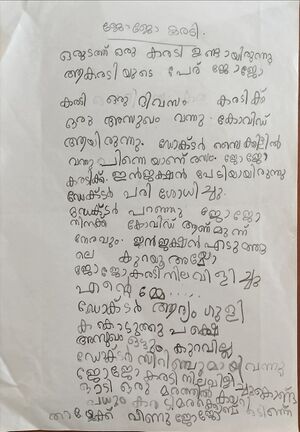 ജോജോ കരടി.
ഒരുടത്ത് ഒരു കരടി ഉണ്ടായിരുന്നു
ആകരടിയുടെ പേര് ജോജോ
ഒരു ദിവസം കരടിക്ക്
ഒരു അസുഖം വന്നു. കോവിഡ്
ആയിരുന്നു. ഡോക്ടർ സൈക്കിളിൽ
വന്നു പിന്നെ യാണ് രസം. ജോജോ
കരടിക്ക്. ഇൻജക്ഷൻ പേടിയായിരുന്നു
ഡോക്ടർ പരി ശോധിച്ചു.
ഡോക്ടർ പറഞ്ഞു ജോജോ
നിനക്ക് കോവിഡ് ആണ് മൂന്ന്
നേരവും. ഇൻജക്ഷൻ എടുത്തു
ലെ കുറയു അമ്മോ
ജോജോകരടി നിലവിളിച്ചു
എന്റെ മ്മേ.....
ഡോക്ടർ ആദ്യം ഗുളി
ക കൊടുത്തു പക്ഷെ
അസുഖം ഒട്ടും കുറവില്ല
ഡോക്ടർ സിറിഞ്ചുമായി വന്നു
ജോജോകരടി നിലവിളിച്ചുകൊണ്ടു
ഓടി ഒരു മരത്തിൽ
താഴേക്ക് വീണു ജോജോ ഒടിഞ്ഞ്